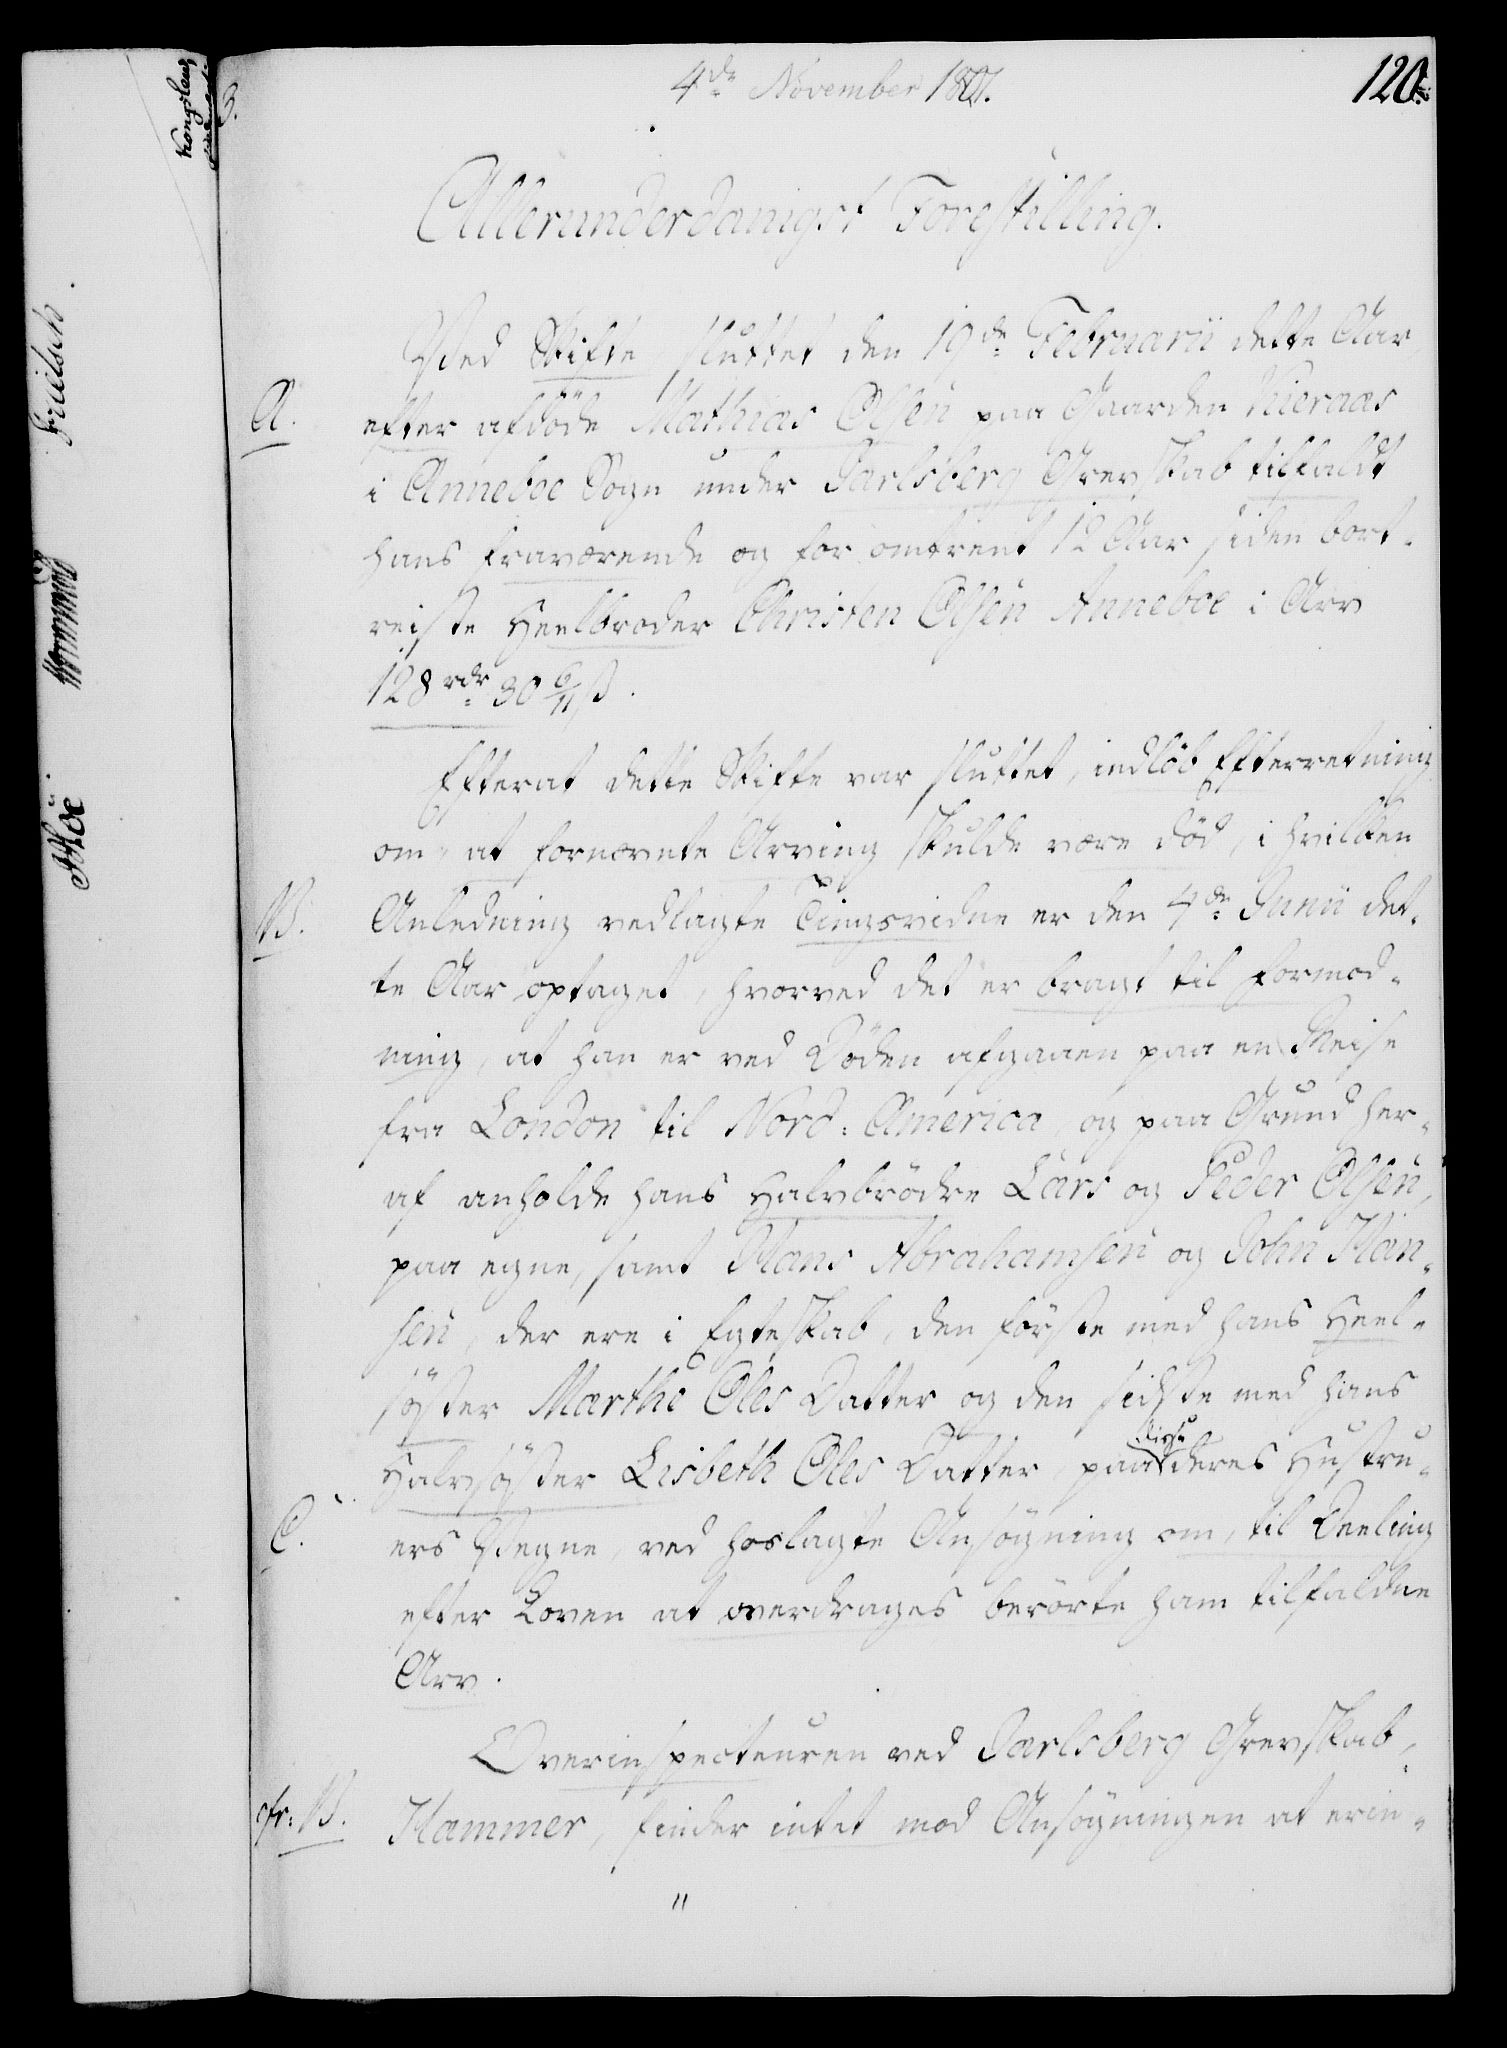 4de November 1801.
120.
3.
Allerunderdanigst Forestilling.
Ved Skifte sluttet den 19de Februarii dette Aar
A.
efter afdöde Mathias Olsen paa Gaarden Kieraas
i Anneboe Sogn under Jarlsberg Grevskab tilfaldt
hans fraværende og for omtrent 12 Aar siden bort-
reiste Heelbroder Christen Olsen Anneboe i Arv
128 rdr 30 6/11 ß.
Efterat dette Skifte var sluttet, indlöb Efterretning
om, at fornævnte Arving skulde være död, i hvilken
B.
Anledning vedlagte Tingsvidne er den 4de Junii det-
te Aar optaget, hvorved det er bragt til Formod-
ning, at han er ved Döden afgaaen paa en Reise
fra London til Nord-America, og paa Grund her-
af anholde hans Halvbrödre Lars og Peder Olsen,
paa egne, samt Hans Abrahamsen og John Han-
sen, der ere i Egteskab, den förste med hans Heel-
söster Marthe Oles Datter og den sidste med hans
Halvsöster Lisbeth Oles Datter, paa disse deres Hustru-
C.
ers Vegne, ved hoslagte Ansögning om, til Deeling
efter Loven at overdrages berörte ham tilfaldne
Arv.
Overinspecteuren ved Jarlsberg Grevskab,
cfr: B.
Hammer, finder intet mod Ansögningen at erin-
"